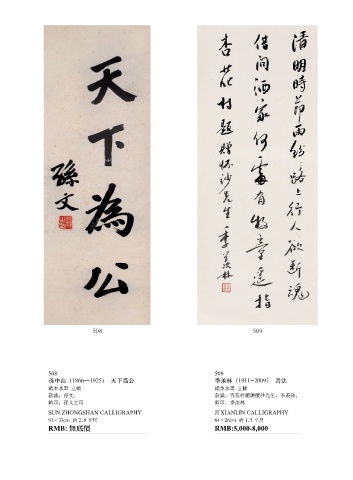 天下為公
孫文
清明時節雨紛紛路上行人欲斷魂
借問酒家何處有牧童遙指
杏花村題贈懷沙先生 季羨林
508
509
508
孫中山（1866—1925） 天下為公
紙本水墨 立軸
款識：孫文。
鈐印：孫文之印
SUN ZHONGSHAN CALLIGRAPHY
97×33cm 約2.8平尺
RMB: 無底價
509
季羨林（1911-2009） 書法
紙本水墨 立軸
款識：杏花村題贈懷沙先生，季羨林。
鈐印：季羨林
XIANLIN CALLIGRAPHY
84×26cm 約1.5平尺
RMB:5,000-8,000